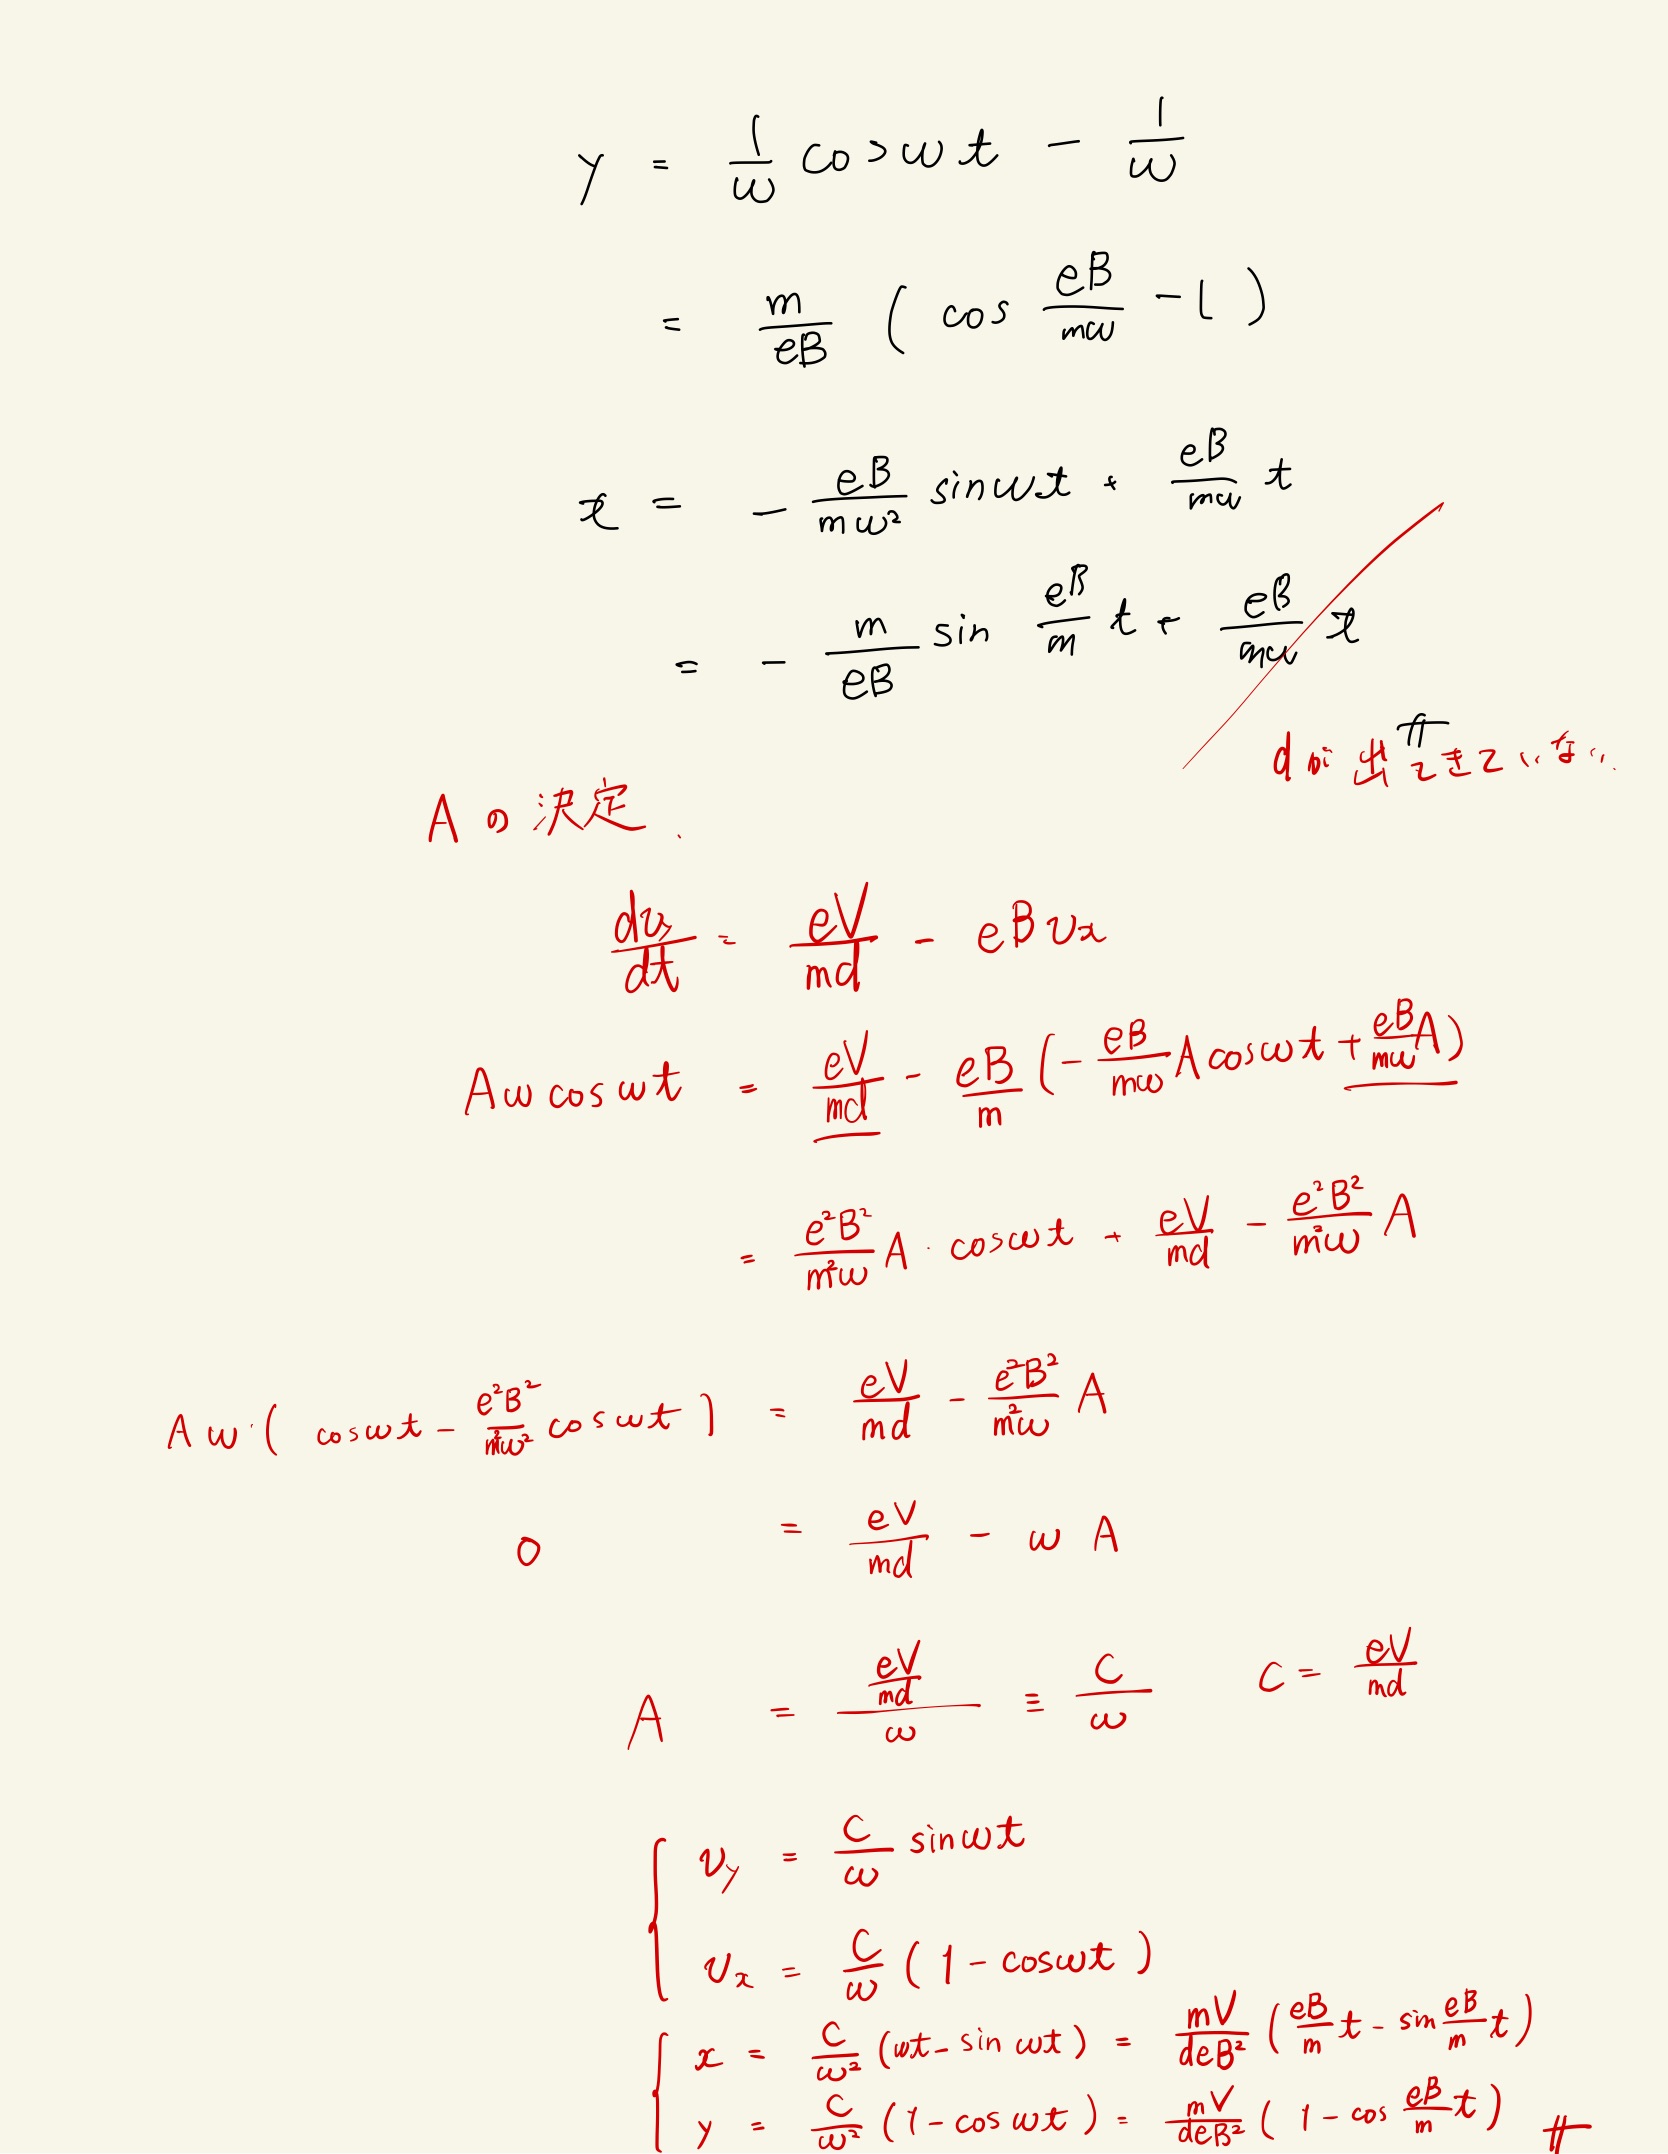 y = 1/ω cosωt - 1/ω
= m/eB ( cos eB/mω - 1 )
x = - eB/mω² sinωt + eB/mω t
= - m/eB sin eB/m t + eB/mω t
dが出てきていない..
Aの決定.
dv_y/dt = eV/md - eBv_x
Aω cosωt = eV/md - eB/m (- eB/mω A cosωt + eB/mω A)
= e²B²/m²ω A · cosωt + eV/md - e²B²/m²ω A
Aω·( cosωt - e²B²/m²ω² cosωt ) = eV/md - e²B²/m²ω A
0 = eV/md - ω A
A = (eV/md)/ω ≡ C/ω C = eV/md
{ v_y = C/ω sinωt
v_x = C/ω ( 1 - cosωt )
{ x = C/ω² (ωt - sin ωt ) = mV/deB² ( eB/m t - sin eB/m t )
y = C/ω² ( 1 - cos ωt ) = mV/deB² ( 1 - cos eB/m t )